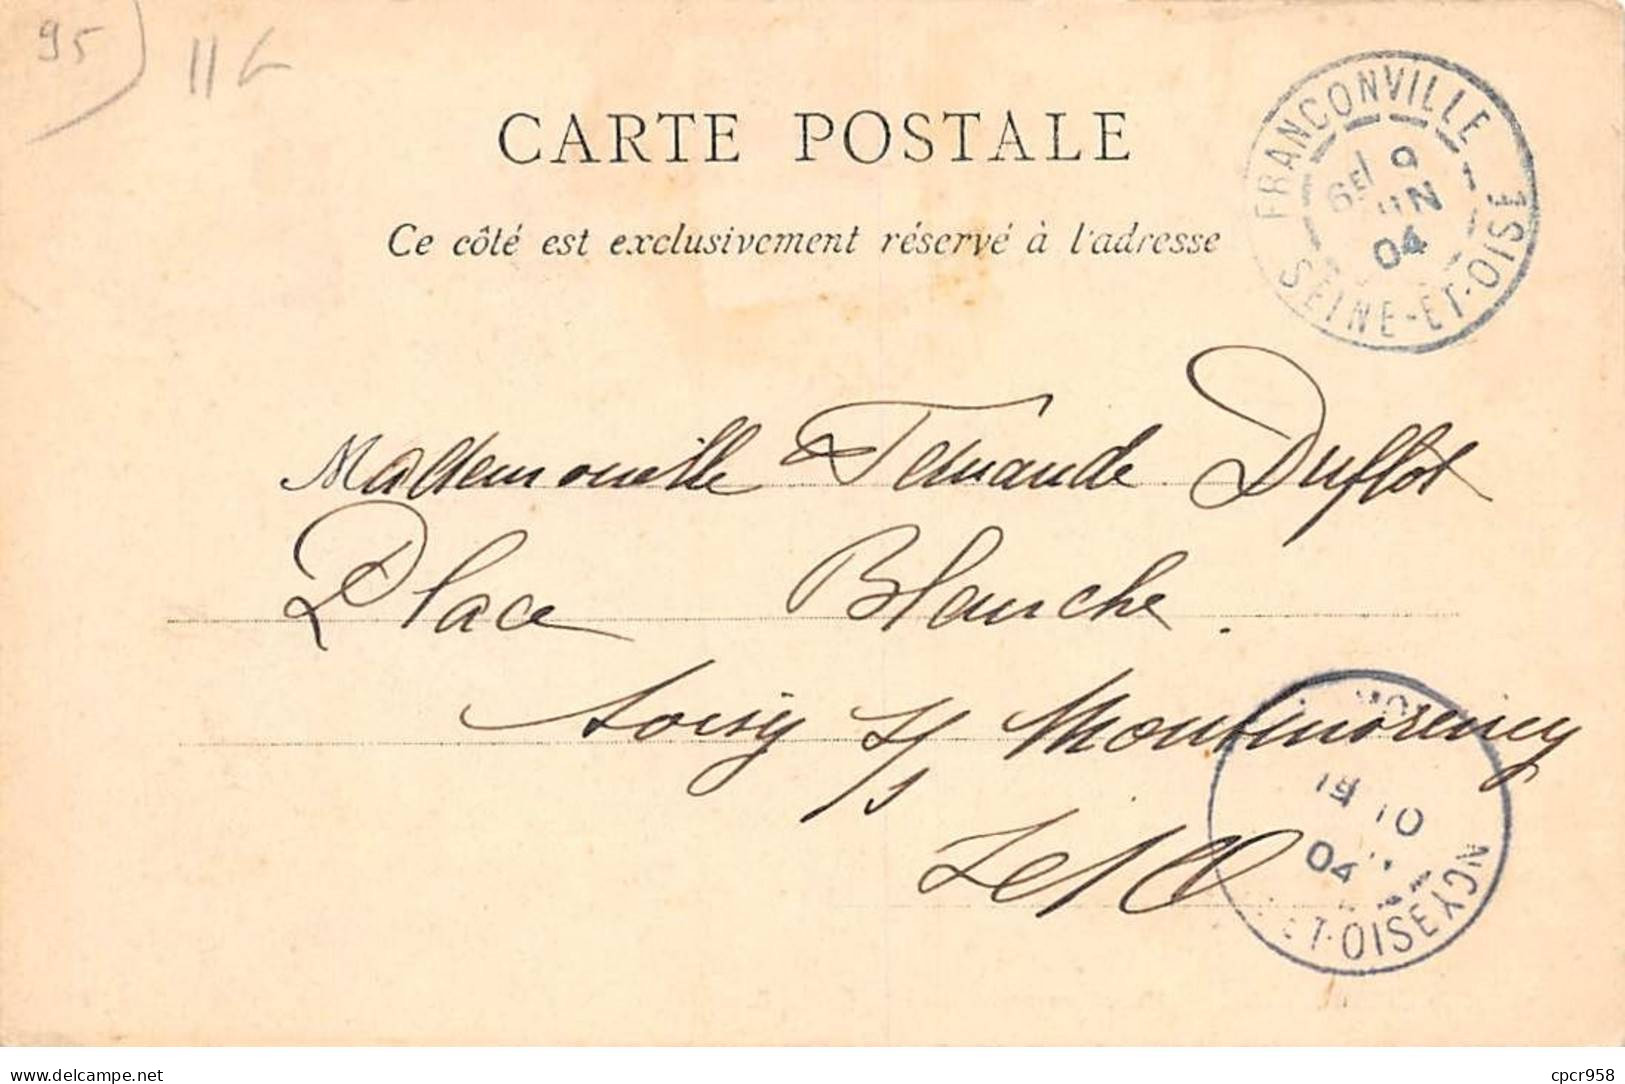 95 11
CARTE POSTALE
Ce côté est exclusivement réservé à l'adresse
FRANCONVILLE
6E 9
JUIN
04
SEINE-ET-OISE
Mademoiselle Fernande Duflot
Place Blanche.
Soisy s/s Montmorency
S et O
1E 10
04
ET-OISE
delcampe.net
cpcr958